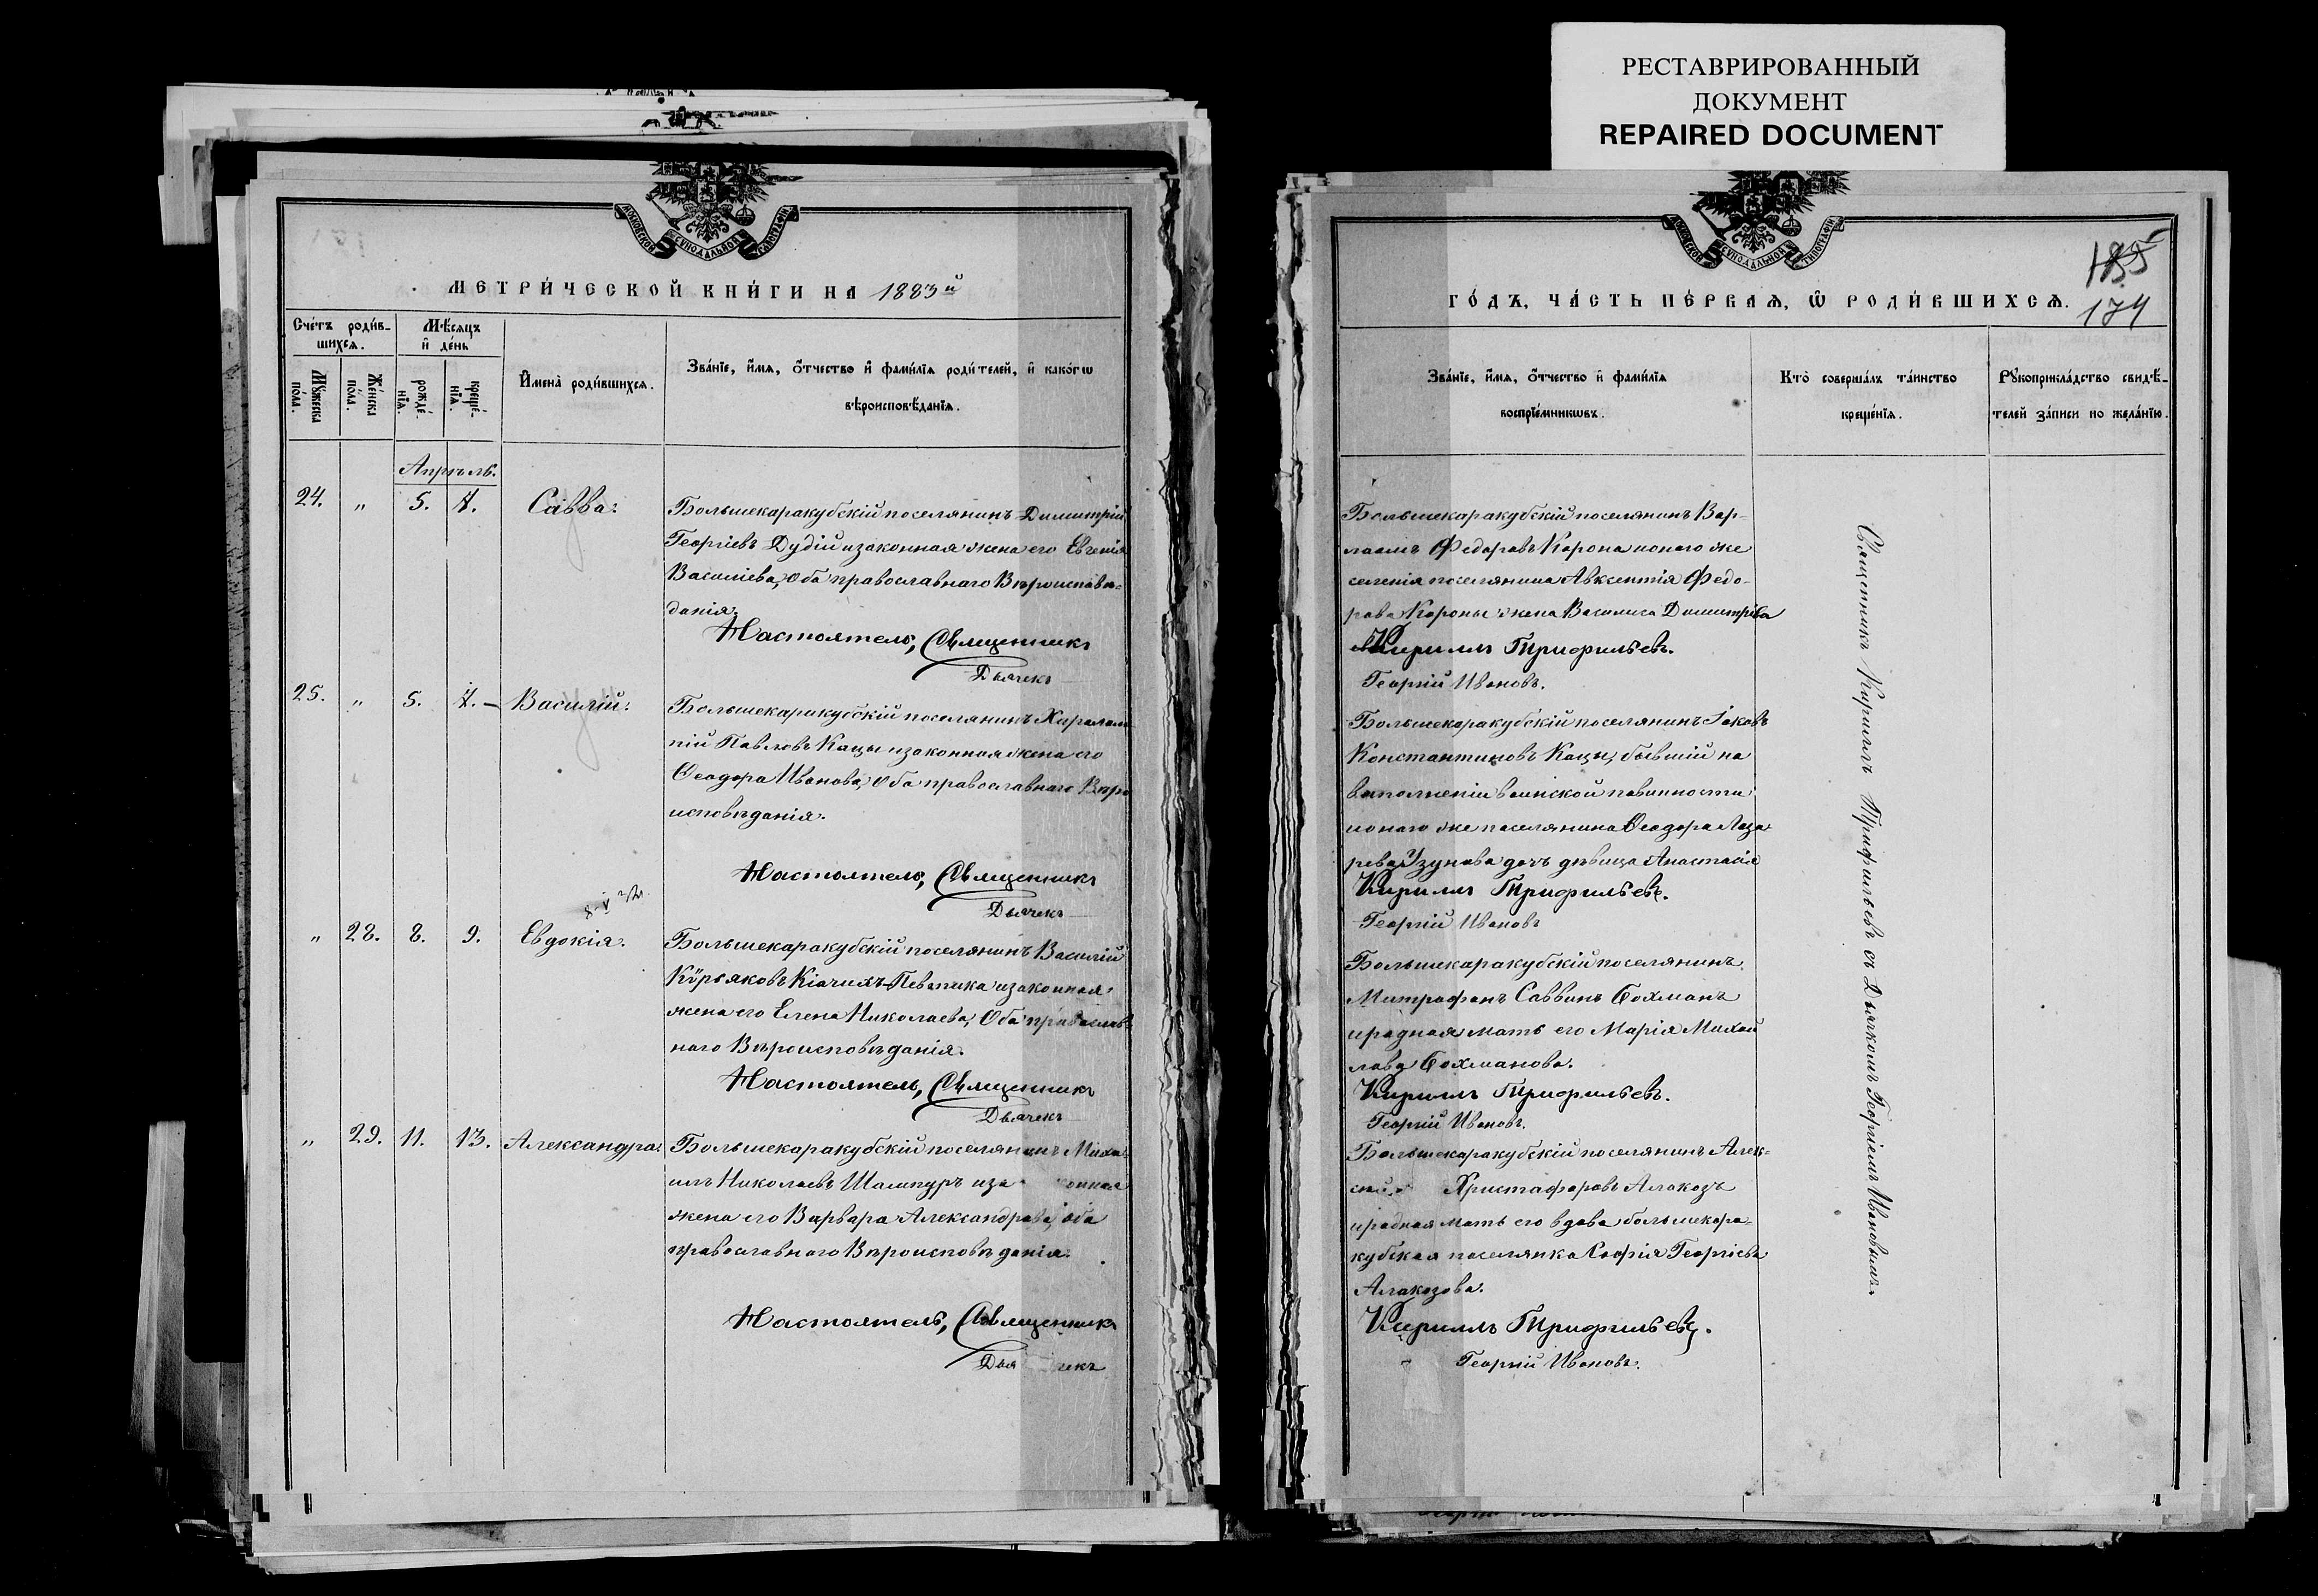 РЕСТАВРИРОВАННЫЙ
ДОКУМЕНТ
REPAIRED DOCUMENT
МОСКОВСКОЙ СѴНОДАЛЬНОЙ ТИПОГРАФІИ
МЕТРИ́ЧЕСКОЙ КНИ́ГИ НА 1883й
Сче́тъ роди́в-
шихсѧ.
Мѣ́сяцъ
и де́нь
Мꙋ́жеска
по́ла.
Же́нска
по́ла.
рожде́-
нїѧ.
креще́-
нїѧ.
Имена̀ роди́вшихсѧ.
Зва́нїе, и́мѧ, ѻ́тчество и фами́лїѧ роди́телей, и како́гѡ
вѣроисповѣ́данїѧ.
Апрѣль.
24. „ 5. 7. Савва.
Большекаракубскій поселянинъ Димитрій
Георгіевъ Дудій и законная жена его Евгенія
Васильева, Оба православнаго Вѣроисповѣ-
данія.
Настоятель, Священникъ
Дьячекъ
25. „ 5. 7. Василій.
Большекаракубскій поселянинъ Харалам-
пій Павловъ Кацы и законная жена его
Ѳеодора Иванова, Оба православнаго Вѣро
исповѣданія.
Настоятель, Священникъ
Дьячекъ
„ 28. 8. 9. Евдокія.
Большекаракубскій поселянинъ Василій
Кіачихъ-Певатика и законная
жена его Елена Николаева, Оба православ-
наго Вѣроисповѣданія.
Настоятель, Священникъ
Дьячекъ
„ 29. 11. 13. Александра.
Большекаракубскій поселянинъ Миха-
илъ Николаевъ Шампуръ и за онная
жена его Варвара Александрова, оба
православнаго Вѣроисповѣданія.
Настоятель, Священникъ
Дья чекъ
МОСКОВСКОЙ СѴНОДАЛЬНОЙ ТИПОГРАФІИ
185
174
ГО́ДЪ, ЧА́СТЬ ПЕ́РВАѦ, Ѡ РОДИ́ВШИХСѦ.
Зва́нїе, и́мѧ, ѻ́тчество и фами́лїѧ
воспрїе́мникѡвъ.
Кто̀ соверша́лъ та́инство
креще́нїѧ.
Рꙋкоприкла́дство свидѣ́-
телей за́писи по жела́нїю.
Большекаракубскій поселянинъ Вар-
лаамъ Федоровъ Корона и онаго же
селенія поселянина Авксентія Федо-
рова Короны жена Василиса Димитріева
Кириллъ Трифильевъ.
Георгій Ивановъ.
Большекаракубскій поселянинъ Іаковъ
Константиновъ Кацы, бывшій на
выполненіи воинской повинности
и онаго же поселянина Ѳеодора Лаза-
рева Узунова дочь дѣвица Анастасія
Кириллъ Трифильевъ.
Георгій Ивановъ
Большекаракубскій поселянинъ
Митрофанъ Саввинъ Бохманъ
и родная мать его Марія Михай
лова Бохманова.
Кириллъ Трифильевъ.
Георгій Ивановъ.
Большекаракубскій поселянинъ Алек-
сѣй Христафоровъ Алакозъ
и родная мать его вдова большекара-
кубская поселянка Софія Георгіева
Алакозова.
Кириллъ Трифильевъ.
Георгій Ивановъ.
Священникъ Кириллъ Трифильевъ съ Дьячкомъ Георгіемъ Ивановымъ.